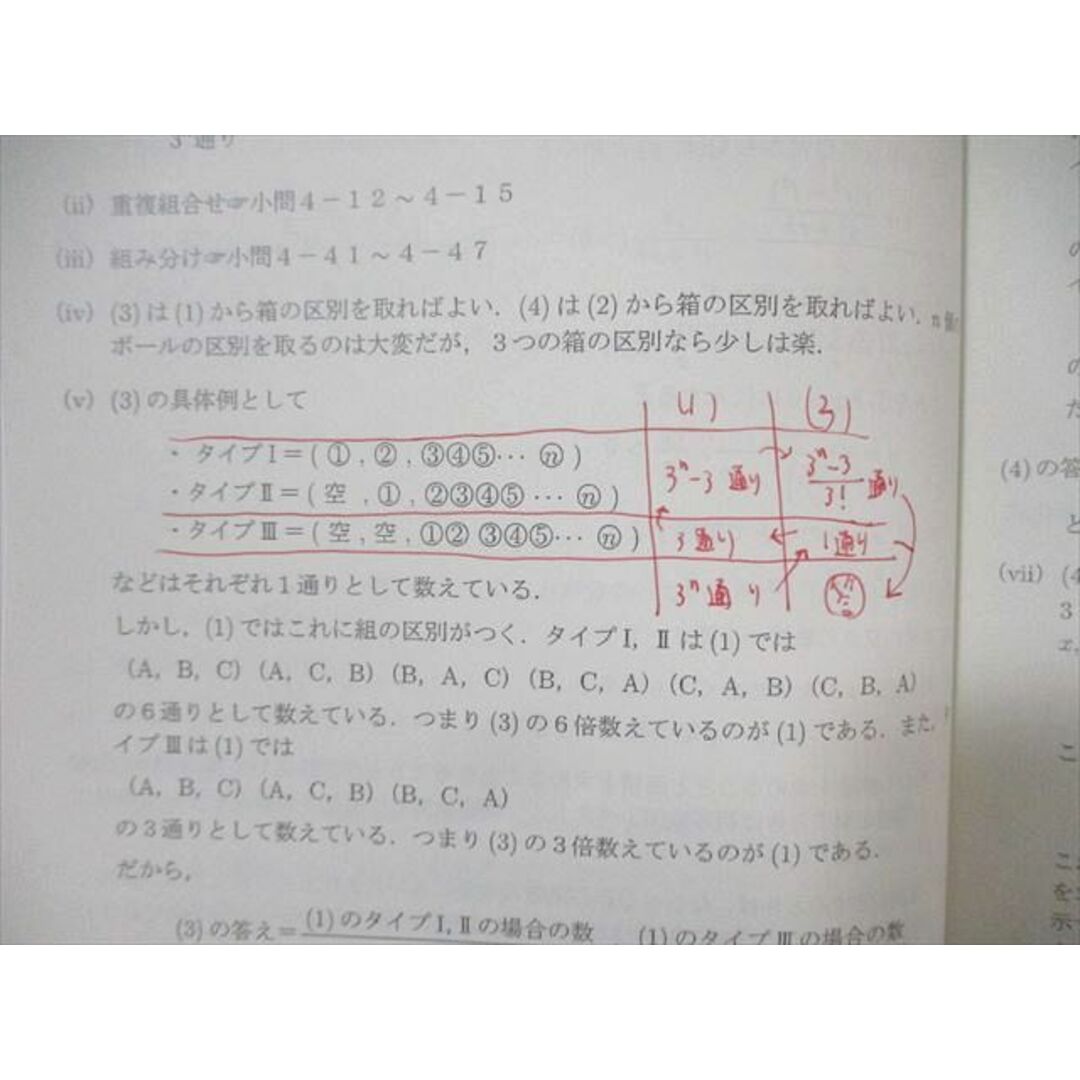 3 通り
(ii) 重複組合せ☞小問4－12～4－15
(iii) 組み分け☞小問4－41～4－47
(iv) (3)は(1)から箱の区別を取ればよい．(4)は(2)から箱の区別を取ればよい．n個
ボールの区別を取るのは大変だが，３つの箱の区別なら少しは楽．
(v) (3)の具体例として
(1) (3)
・タイプⅠ＝(①，②，③④⑤… ⓝ)
・タイプⅡ＝(空，①，②③④⑤ … ⓝ)
3ⁿ－3 通り
3ⁿ－3
3! 通り
・タイプⅢ＝(空，空，①② ③④⑤… ⓝ)
3通り
1通り
3ⁿ通り
などはそれぞれ１通りとして数えている．
しかし，(1)ではこれに組の区別がつく．タイプⅠ，Ⅱは(1)では
(A，B，C) (A，C，B) (B，A，C) (B，C，A) (C，A，B) (C，B，A)
の６通りとして数えている．つまり(3)の６倍数えているのが(1)である．また，
イプⅢは(1)では
(A，B，C) (A，C，B) (B，C，A)
の３通りとして数えている．つまり(3)の３倍数えているのが(1)である．
だから，
(3)の答え＝(1)のタイプⅠ,Ⅱの場合の数 (1)のタイプⅢの場合の数
(4)の答
(vii) (4
3
x,
こ